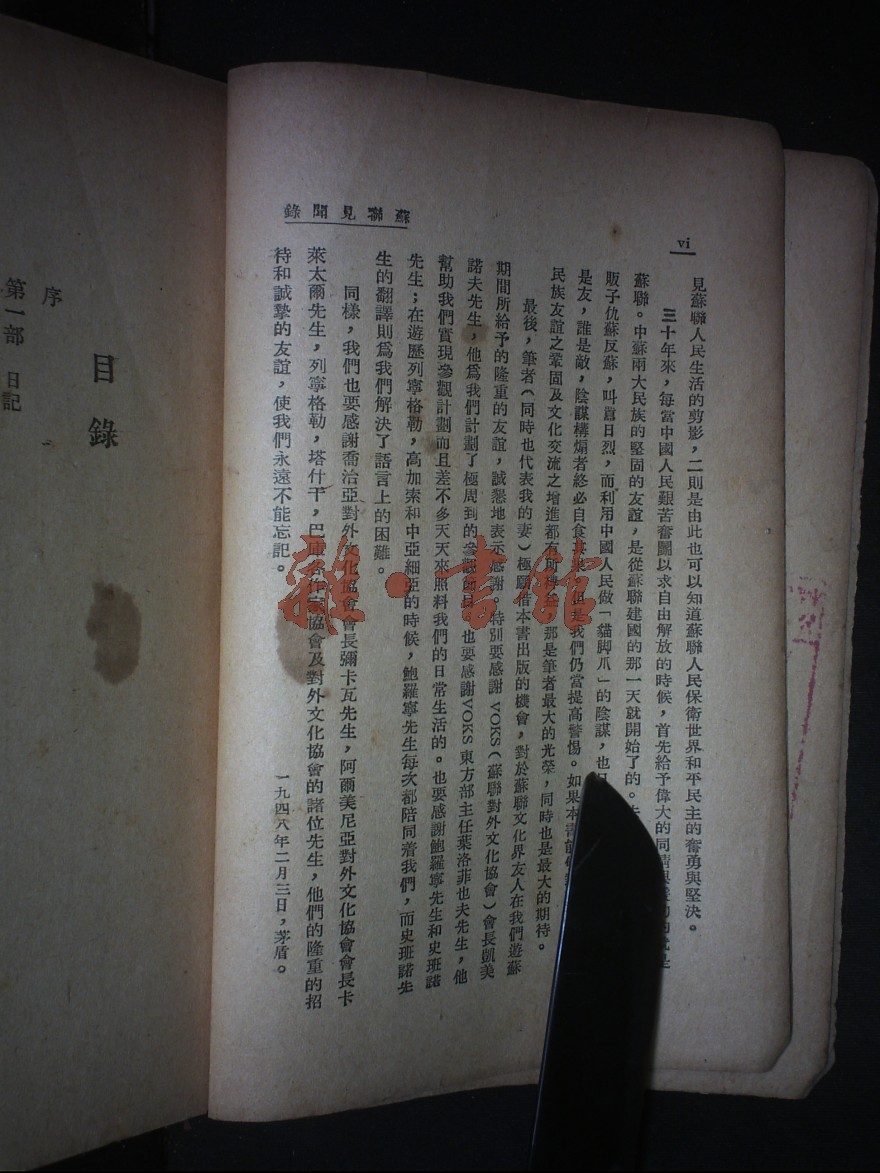 vi
蘇聯見聞錄
見蘇聯人民生活的剪影,二則是由此也可以知道蘇聯人民保衛世界和平民主的奮勇與堅決。
三十年來,每當中國人民艱苦奮鬭以求自由解放的時候,首先給予偉大的同情與
蘇聯。中蘇兩大民族的堅固的友誼,是從蘇聯建國的那一天就開始了的。
販子仇蘇反蘇,叫囂日烈,而利用中國人民做「貓脚爪」的陰謀,也
是友,誰是敵,陰謀構煽者終必自食其果,但是我們仍當提高警惕。如果本書
民族友誼之鞏固及文化交流之增進都有所,那是筆者最大的光榮,同時也是最大的期待。
最後,筆者(同時也代表我的妻)極願借本書出版的機會,對於蘇聯文化界友人在我們遊蘇
期間所給予的隆重的友誼,誠懇地表示感謝。特別要感謝 VOKS(蘇聯對外文化協會)會長凱美
諾夫先生,他爲我們計劃了極周到的參觀節目,也要感謝VOKS東方部主任葉洛菲也夫先生,他
幫助我們實現參觀計劃而且差不多天天來照料我們的日常生活的。也要感謝鮑羅寧先生和史班諾
先生;在遊歷列寧格勒,高加索和中亞細亞的時候,鮑羅寧先生每次都陪同着我們,而史班諾先
生的翻譯則爲我們解決了語言上的困難。
同樣,我們也要感謝喬治亞對外文化協會會長彌卡瓦先生,阿爾美尼亞對外文化協會會長卡
萊太爾先生,列寧格勒,塔什干,巴庫各作家協會及對外文化協會的諸位先生,他們的隆重的招
待和誠摯的友誼,使我們永遠不能忘記。
一九四八年二月三日,茅盾。
目錄
序
第一部 日記
雜·書館